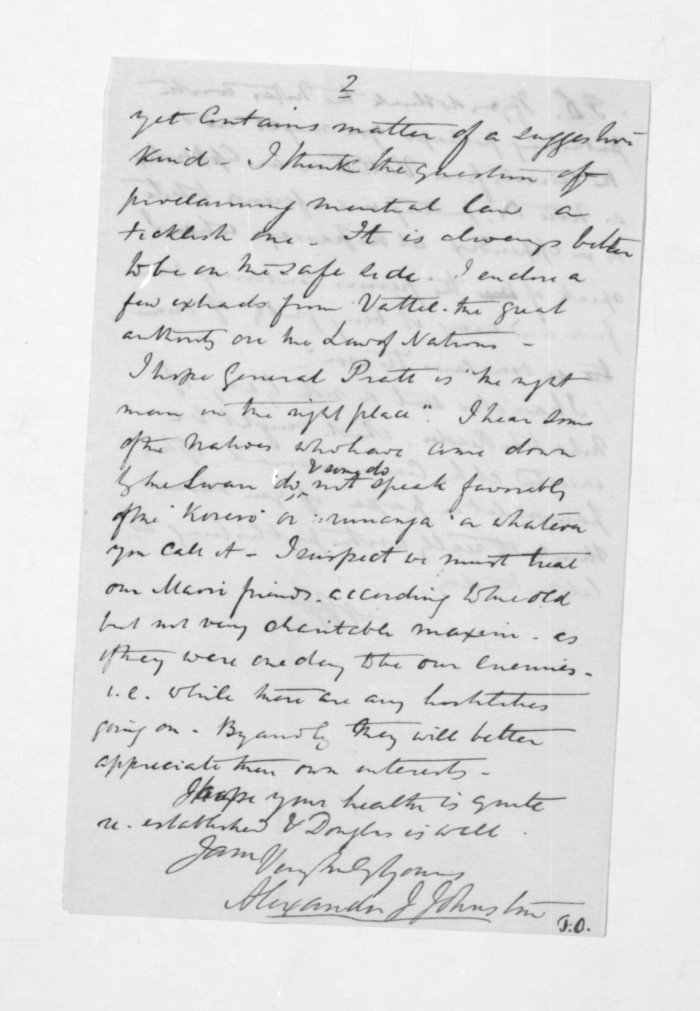 2
yet contains matter of a suggestive
kind - I think the question of
proclaiming martial law a
ticklish one - It is always better
to be on the safe side. I enclose a
few extracts from Vattel - the great
authority on the Law of Nations -
I hope General Pratt is "the right
man in the right place". I hear some
of the Natives who have come down
& some do
by the Swan do not speak favorably
of the 'Korero' or 'runanga' or whatever
you call it - I suspect we must treat
our Maori friends according to the old
but not very charitable maxim - as
if they were one day to be our enemies -
i.e. while there are any hostilities
going on - By and by they will better
appreciate their own interests -
I hope your health is quite
re-established & Douglas is well.
I am Very truly Yours
Alexander J Johnston
T.O.